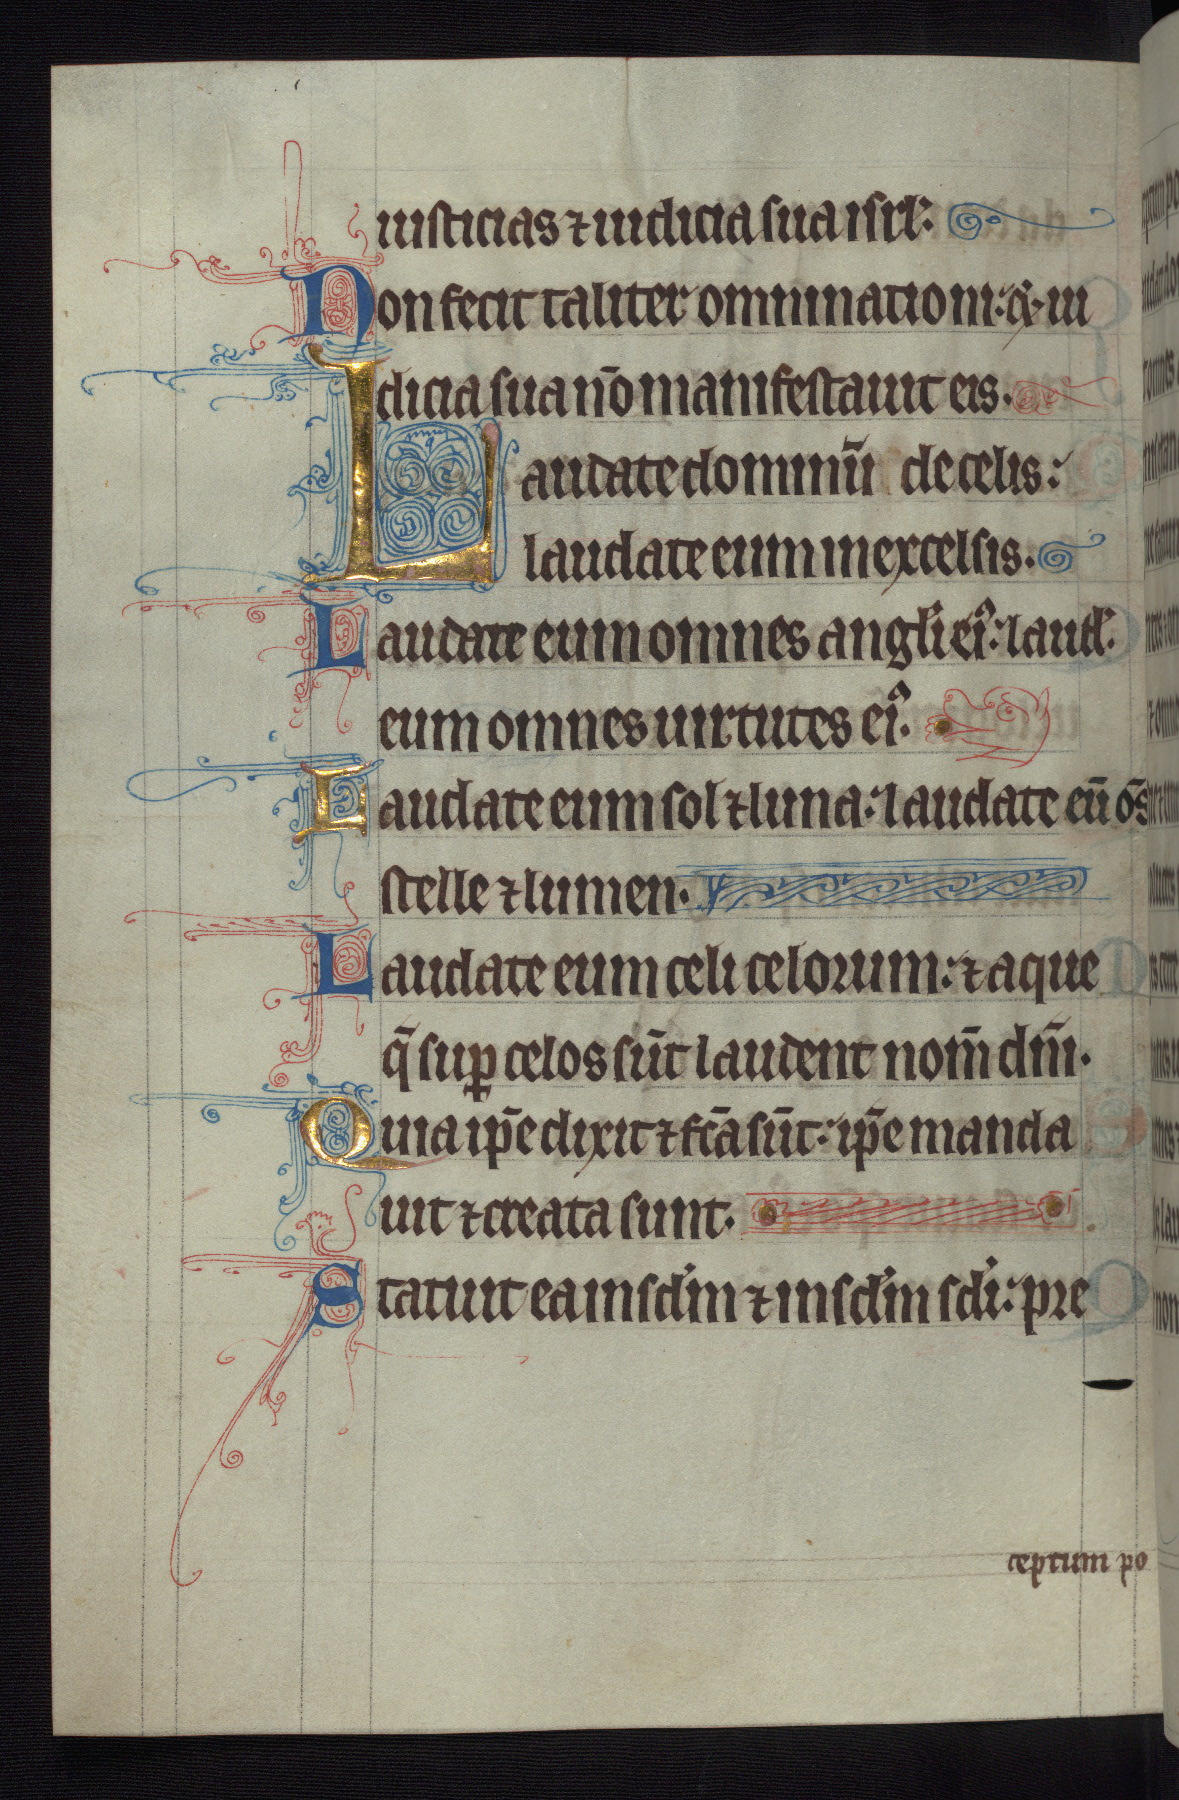 iusticias ⁊ iudicia sua isrł:
Non fecit taliter omni nationi: ⁊ iu
dicia sua nō manifestauit eis.
Laudate dominū de celis:
laudate eum in excelsis.
Laudate eum omnes angłi eiꝰ: laud̄
eum omnes uirtutes eiꝰ.
Laudate eum sol ⁊ luna: laudate eū om̄s
stelle ⁊ lumen.
Laudate eum celi celorum: ⁊ aque
q̄ suꝑ celos sūt laudent nom̄ dm̄i.
Quia ip̄e dixit ⁊ fc̄a sūt: ip̄e manda
uit ⁊ creata sunt.
Statuit ea in sc̄l'm ⁊ in sc̄l'm sc̄l'i: pre
ceptum po